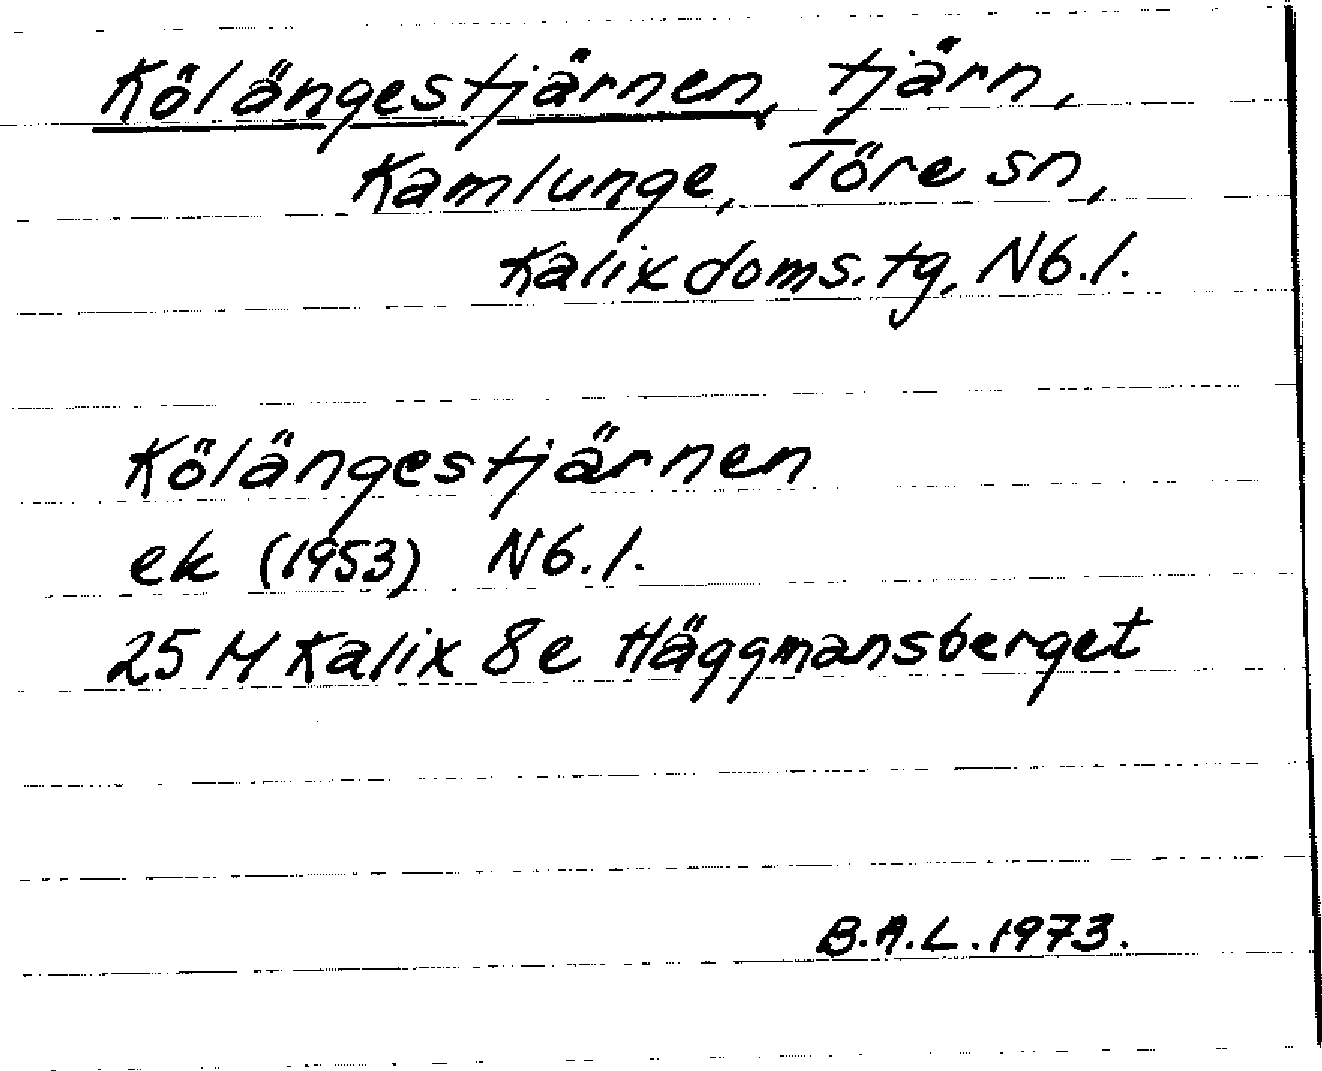 Kölängestjärnen, tjärn,
Kamlunge, Töre sn,
Kalix doms.tg, Nb.l.
Kölängestjärnen
ek (1953) Nb.l.
25 M Kalix 8e Häggmansberget
B.A.L. 1973.